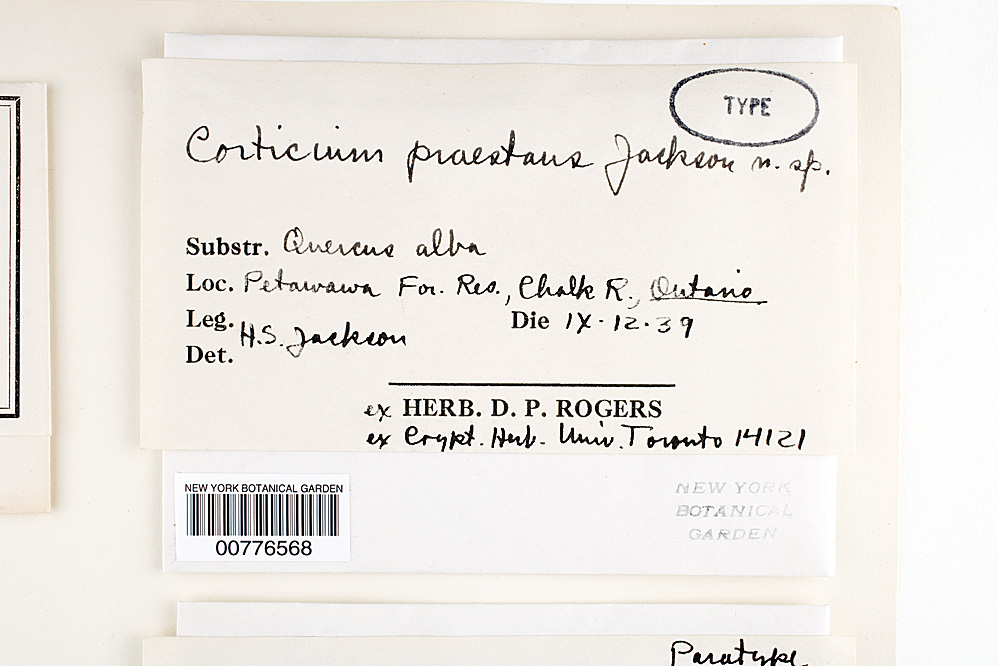 TYPE
Corticium praestans Jackson n. sp.
Substr. Quercus alba
Loc. Petawawa For. Res., Chalk R., Ontario
Leg. H.S. Jackson Die IX-12-39
Det.
ex HERB. D. P. ROGERS
ex Crypt. Herb. Univ. Toronto 14121
NEW YORK BOTANICAL GARDEN
00776568
NEW YORK
BOTANICAL
GARDEN
Paratype